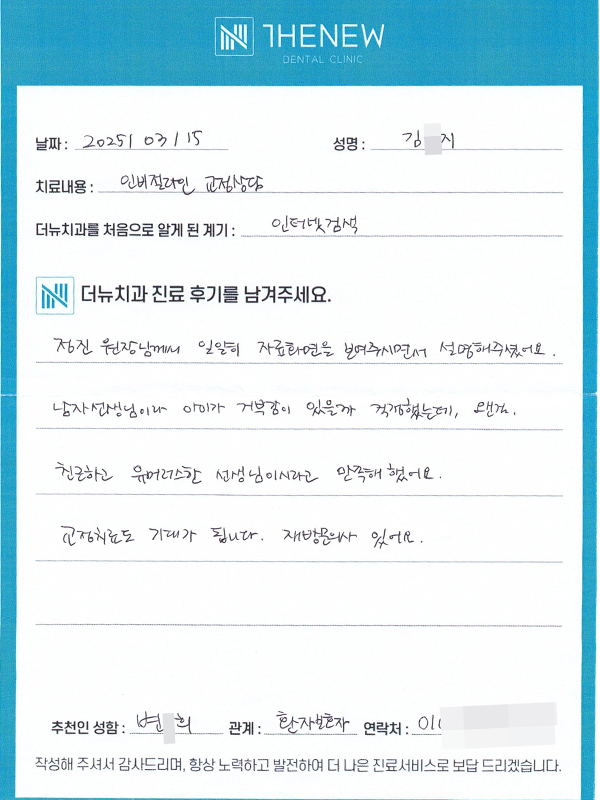 THENEW
DENTAL CLINIC
날짜 : 2025 / 03 / 15 성명 : 김 지
치료내용 : 인비절라인 교정상담
더뉴치과를 처음으로 알게 된 계기 : 인터넷검색
더뉴치과 진료 후기를 남겨주세요.
정진 원장님께서 일일히 자료화면을 보여주시면서 설명해주셨어요.
남자선생님이라 아이가 거부감이 있을까 걱정했는데, 왠걸.
친근하고 유머러스한 선생님이시라고 만족해 했어요.
교정치료도 기대가 됩니다. 재방문의사 있어요.
추천인 성함 : 변 희 관계 : 환자보호자 연락처 : 010
작성해 주셔서 감사드리며, 항상 노력하고 발전하여 더 나은 진료서비스로 보답 드리겠습니다.